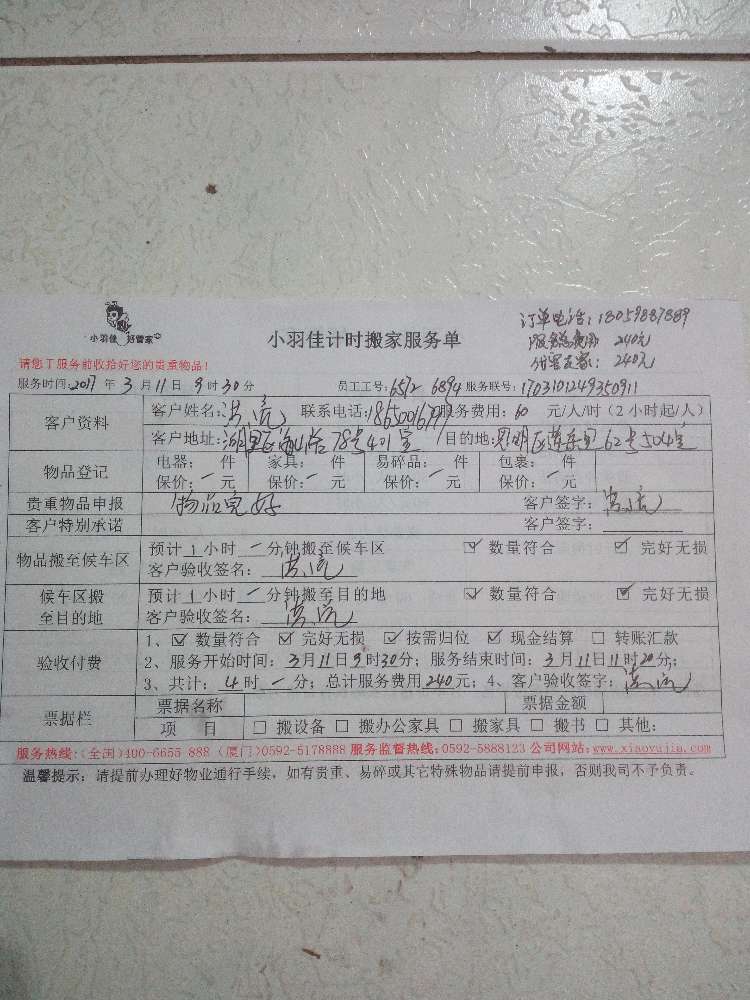 订单电话：18059887889
小羽佳 好管家
小羽佳计时搬家服务单
服务总费用 240元
请您于服务前收拾好您的贵重物品！
240元
服务时间：2017 年 3 月 11 日 9 时 30 分 员工工号：6572 6894 服务联号：1703101249350911
客户资料
客户姓名： 联系电话： 服务费用：60 元/人/时（2小时起/人）
客户地址：湖里区 78号401室 目的地：思明区 62号504室
物品登记
电器： 件 家具： 件 易碎品： 件 包裹： 件
保价：一元 保价：一元 保价：一元 保价：一元
贵重物品申报 物品完好 客户签字：
客户特别承诺 客户签字：
物品搬至候车区
预计 1 小时 一 分钟搬至候车区 ☑ 数量符合 ☑ 完好无损
客户验收签名：
候车区搬至目的地
预计 1 小时 一 分钟搬至目的地 ☑ 数量符合 ☑ 完好无损
客户验收签名：
验收付费
1、☑ 数量符合 ☑ 完好无损 ☑ 按需归位 ☑ 现金结算 □ 转账汇款
2、服务开始时间：3月11日9时30分；服务结束时间：3月11日11时20分；
3、共计：4时一分；总计服务费用240元；4、客户验收签字：
票据栏
票据名称 票据金额
项 目 □ 搬设备 □ 搬办公家具 □ 搬家具 □ 搬书 □ 其他：
服务热线：(全国)400-6655 888 (厦门)0592-5178888 服务监督热线：0592-5888123 公司网站：www.xiaoyujia.com
温馨提示：请提前办理好物业通行手续，如有贵重、易碎或其它特殊物品请提前申报，否则我司不予负责。